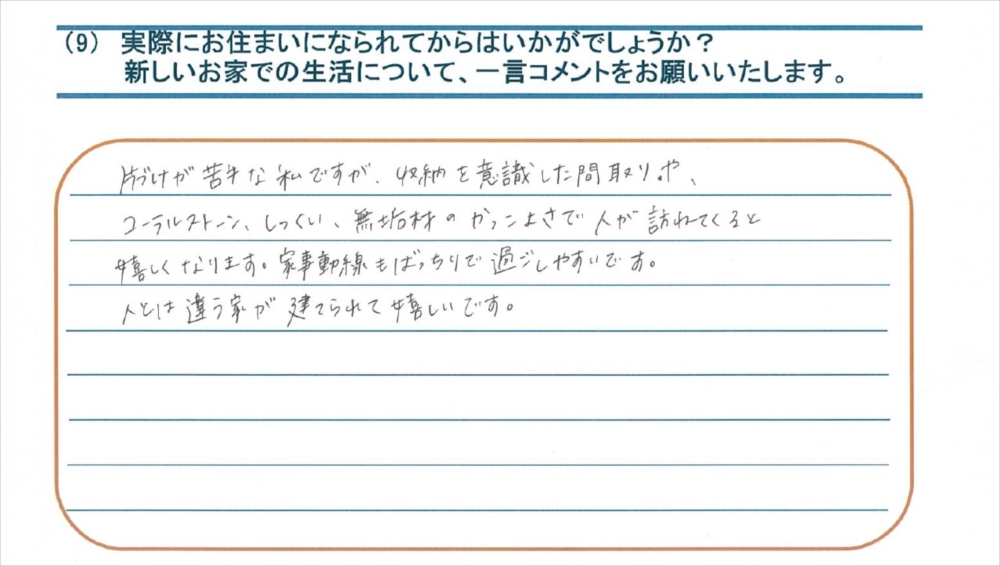 （9） 実際にお住まいになられてからはいかがでしょうか？
新しいお家での生活について、一言コメントをお願いいたします。
片づけが苦手な私ですが、収納を意識した間取りや、
コーラルストーン、しっくい、無垢材のかっこよさで人が訪ねてくると
嬉しくなります。家事動線もばっちりで過ごしやすいです。
人とは違う家が建てられて嬉しいです。